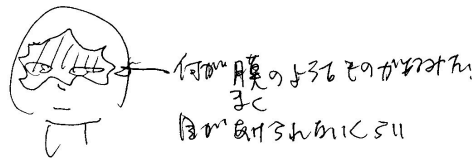 何か膜のようなものがあるみたい
まく
目があけられないくらい